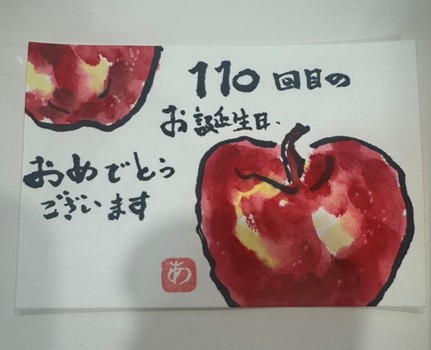 110回目の
お誕生日、
おめでとう
ございます
あ